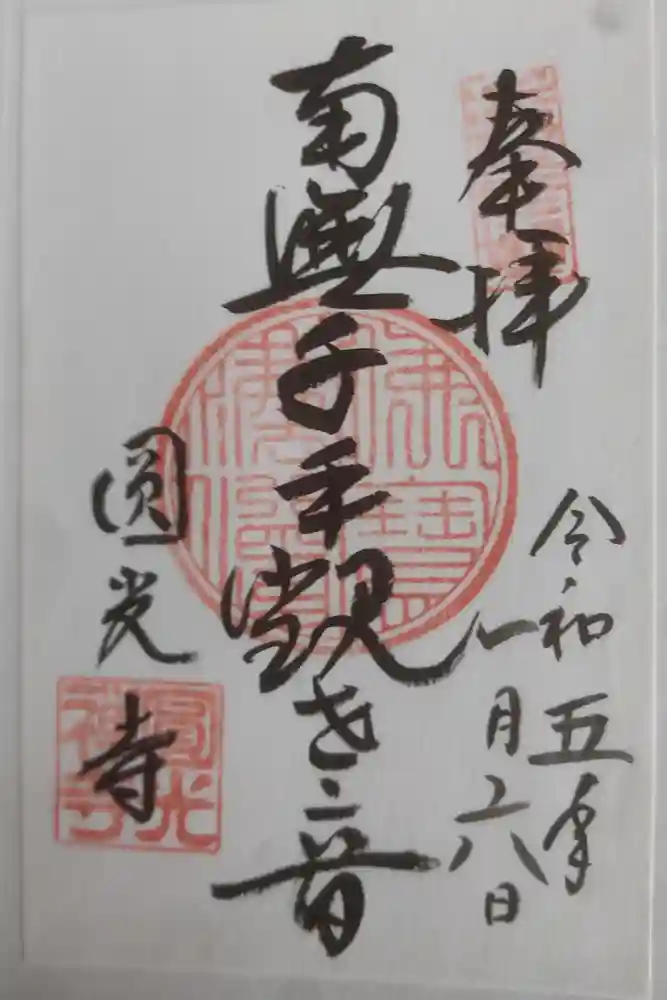 奉拝
令和五年
一月六日
南無千手觀世音
圓光寺
圓光禪寺